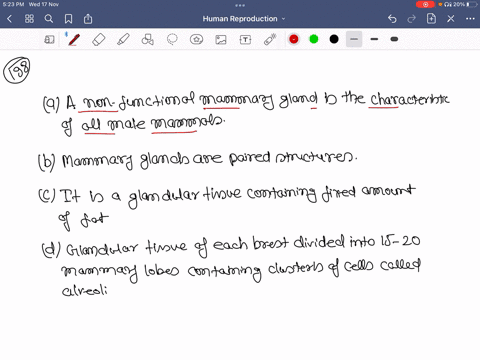 5:23 PM Wed 17 Nov
20%
Human Reproduction
198
(a) A non-functional mammary gland is the characteristic
of all male mammals.
(b) Mammary glands are paired structures.
(c) It is a glandular tissue containing fixed amount
of fat
(d) Glandular tissue of each brest divided into 15-20
mammary lobes containing clusters of cells called
alveoli